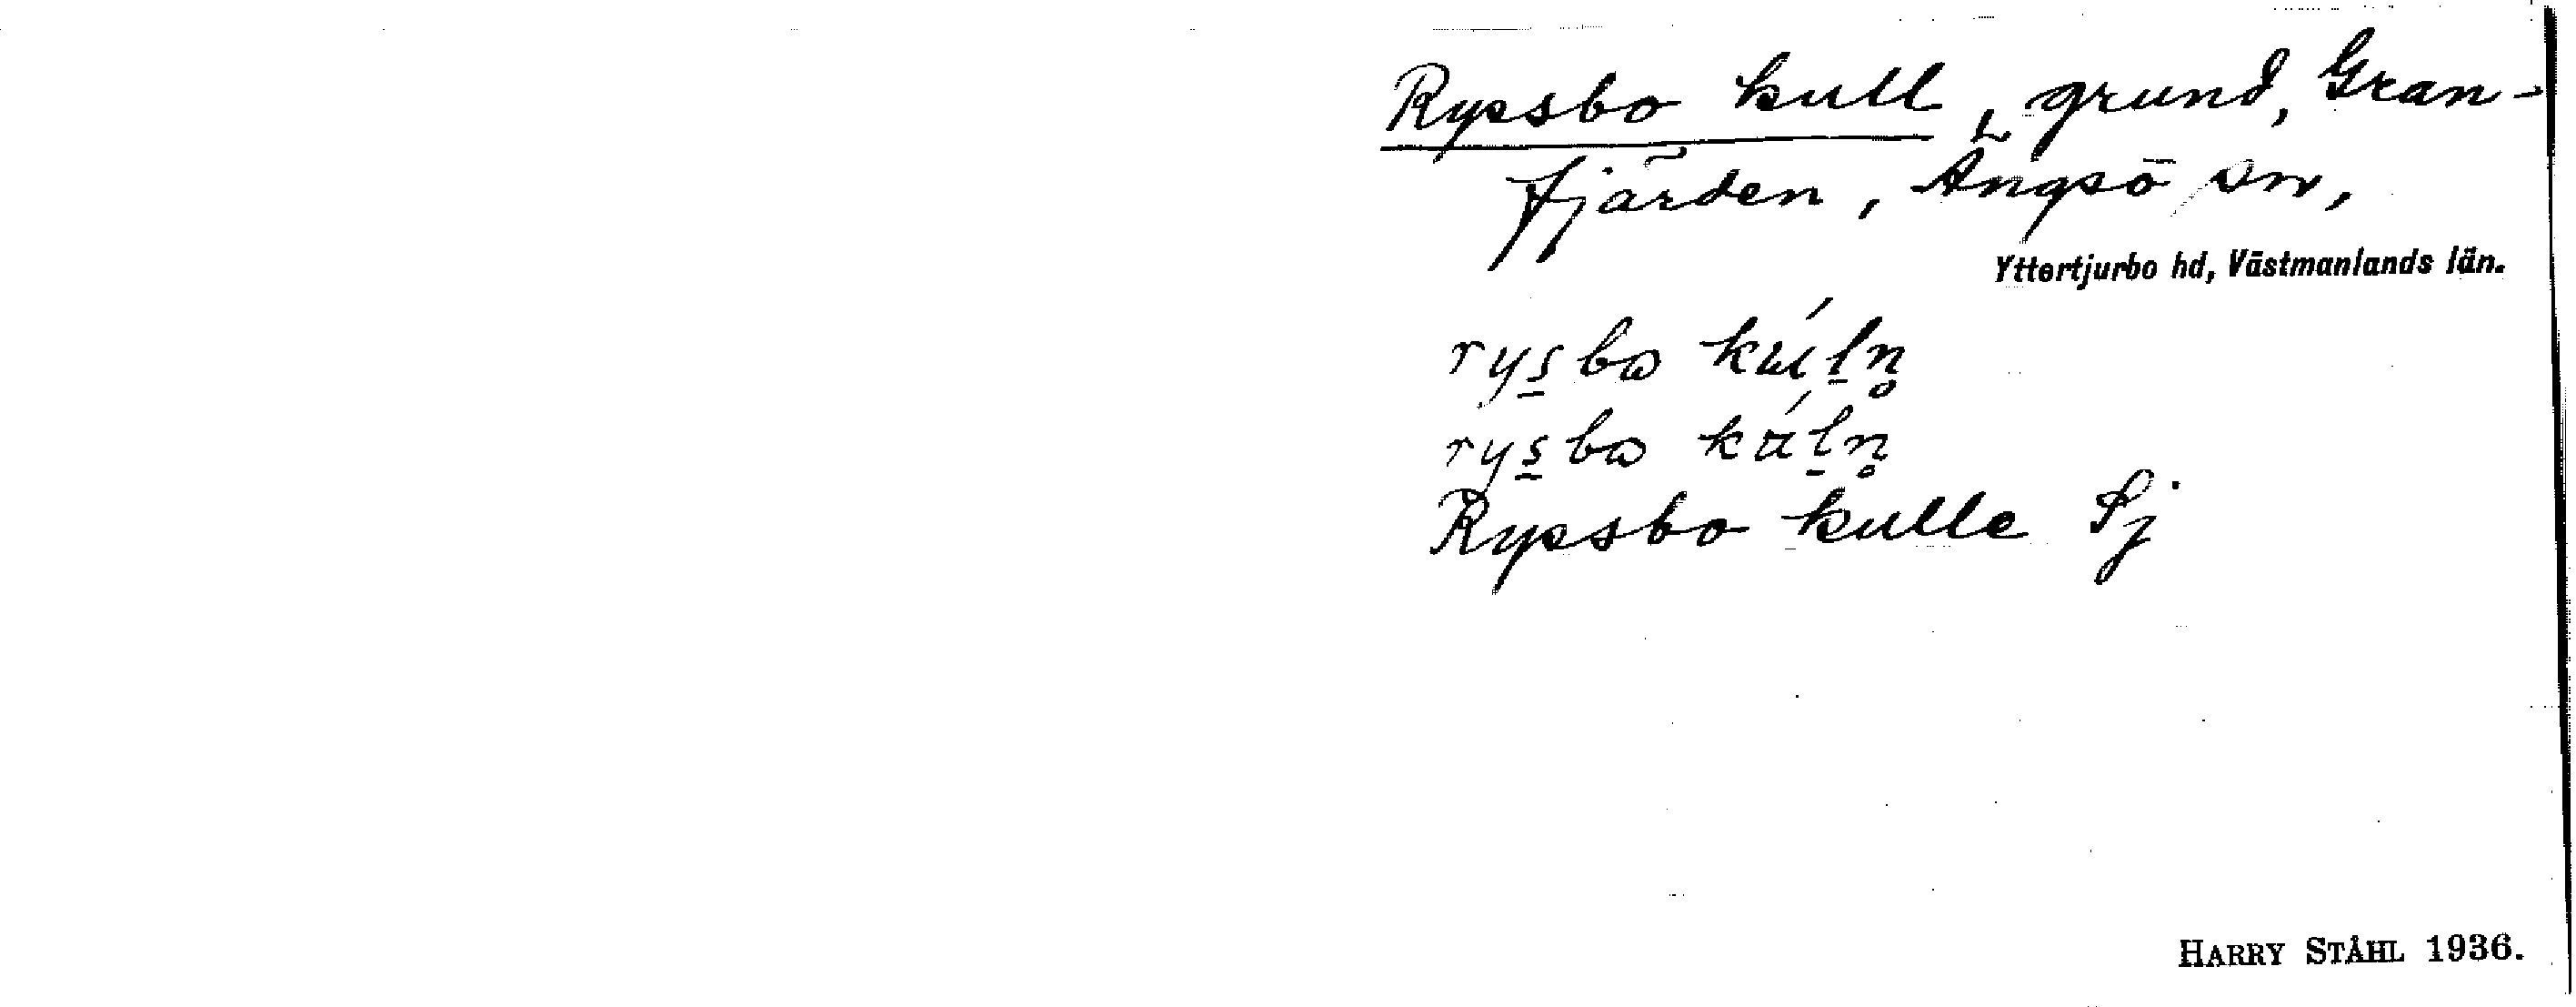 Ryssbo kull, grund, Gran-
fjärden, Ängsö sn,
Yttertjurbo hd, Västmanlands län.
rys̲bω kúl̲n̥
rys̲bω kúl̲n̥
Ryssbo kulle Sj
HARRY STÅHL 1936.